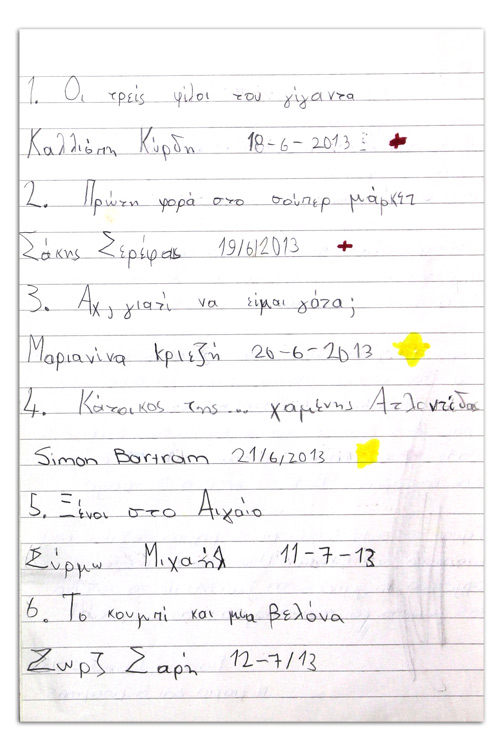 1. Οι τρείς φίλοι του γίγαντα
Καλλιόπη Κύρδη 18-6-2013
2. Πρώτη φορά στο σούπερ μάρκετ
Σάκης Σερέφας 19/6/2013
3. Αχ, γιατί να είμαι γάτα;
Μαριανίνα Κριεζή 20-6-2013
4. Κάτοικος της... χαμένης Ατλαντίδας
Simon Bartram 21/6/2013
5. Ξένοι στο Αιγαίο
Σύρμω Μιχαήλ 11-7-13
6. Το κουμπί και μια βελόνα
Ζωρζ Σαρή 12-7/13